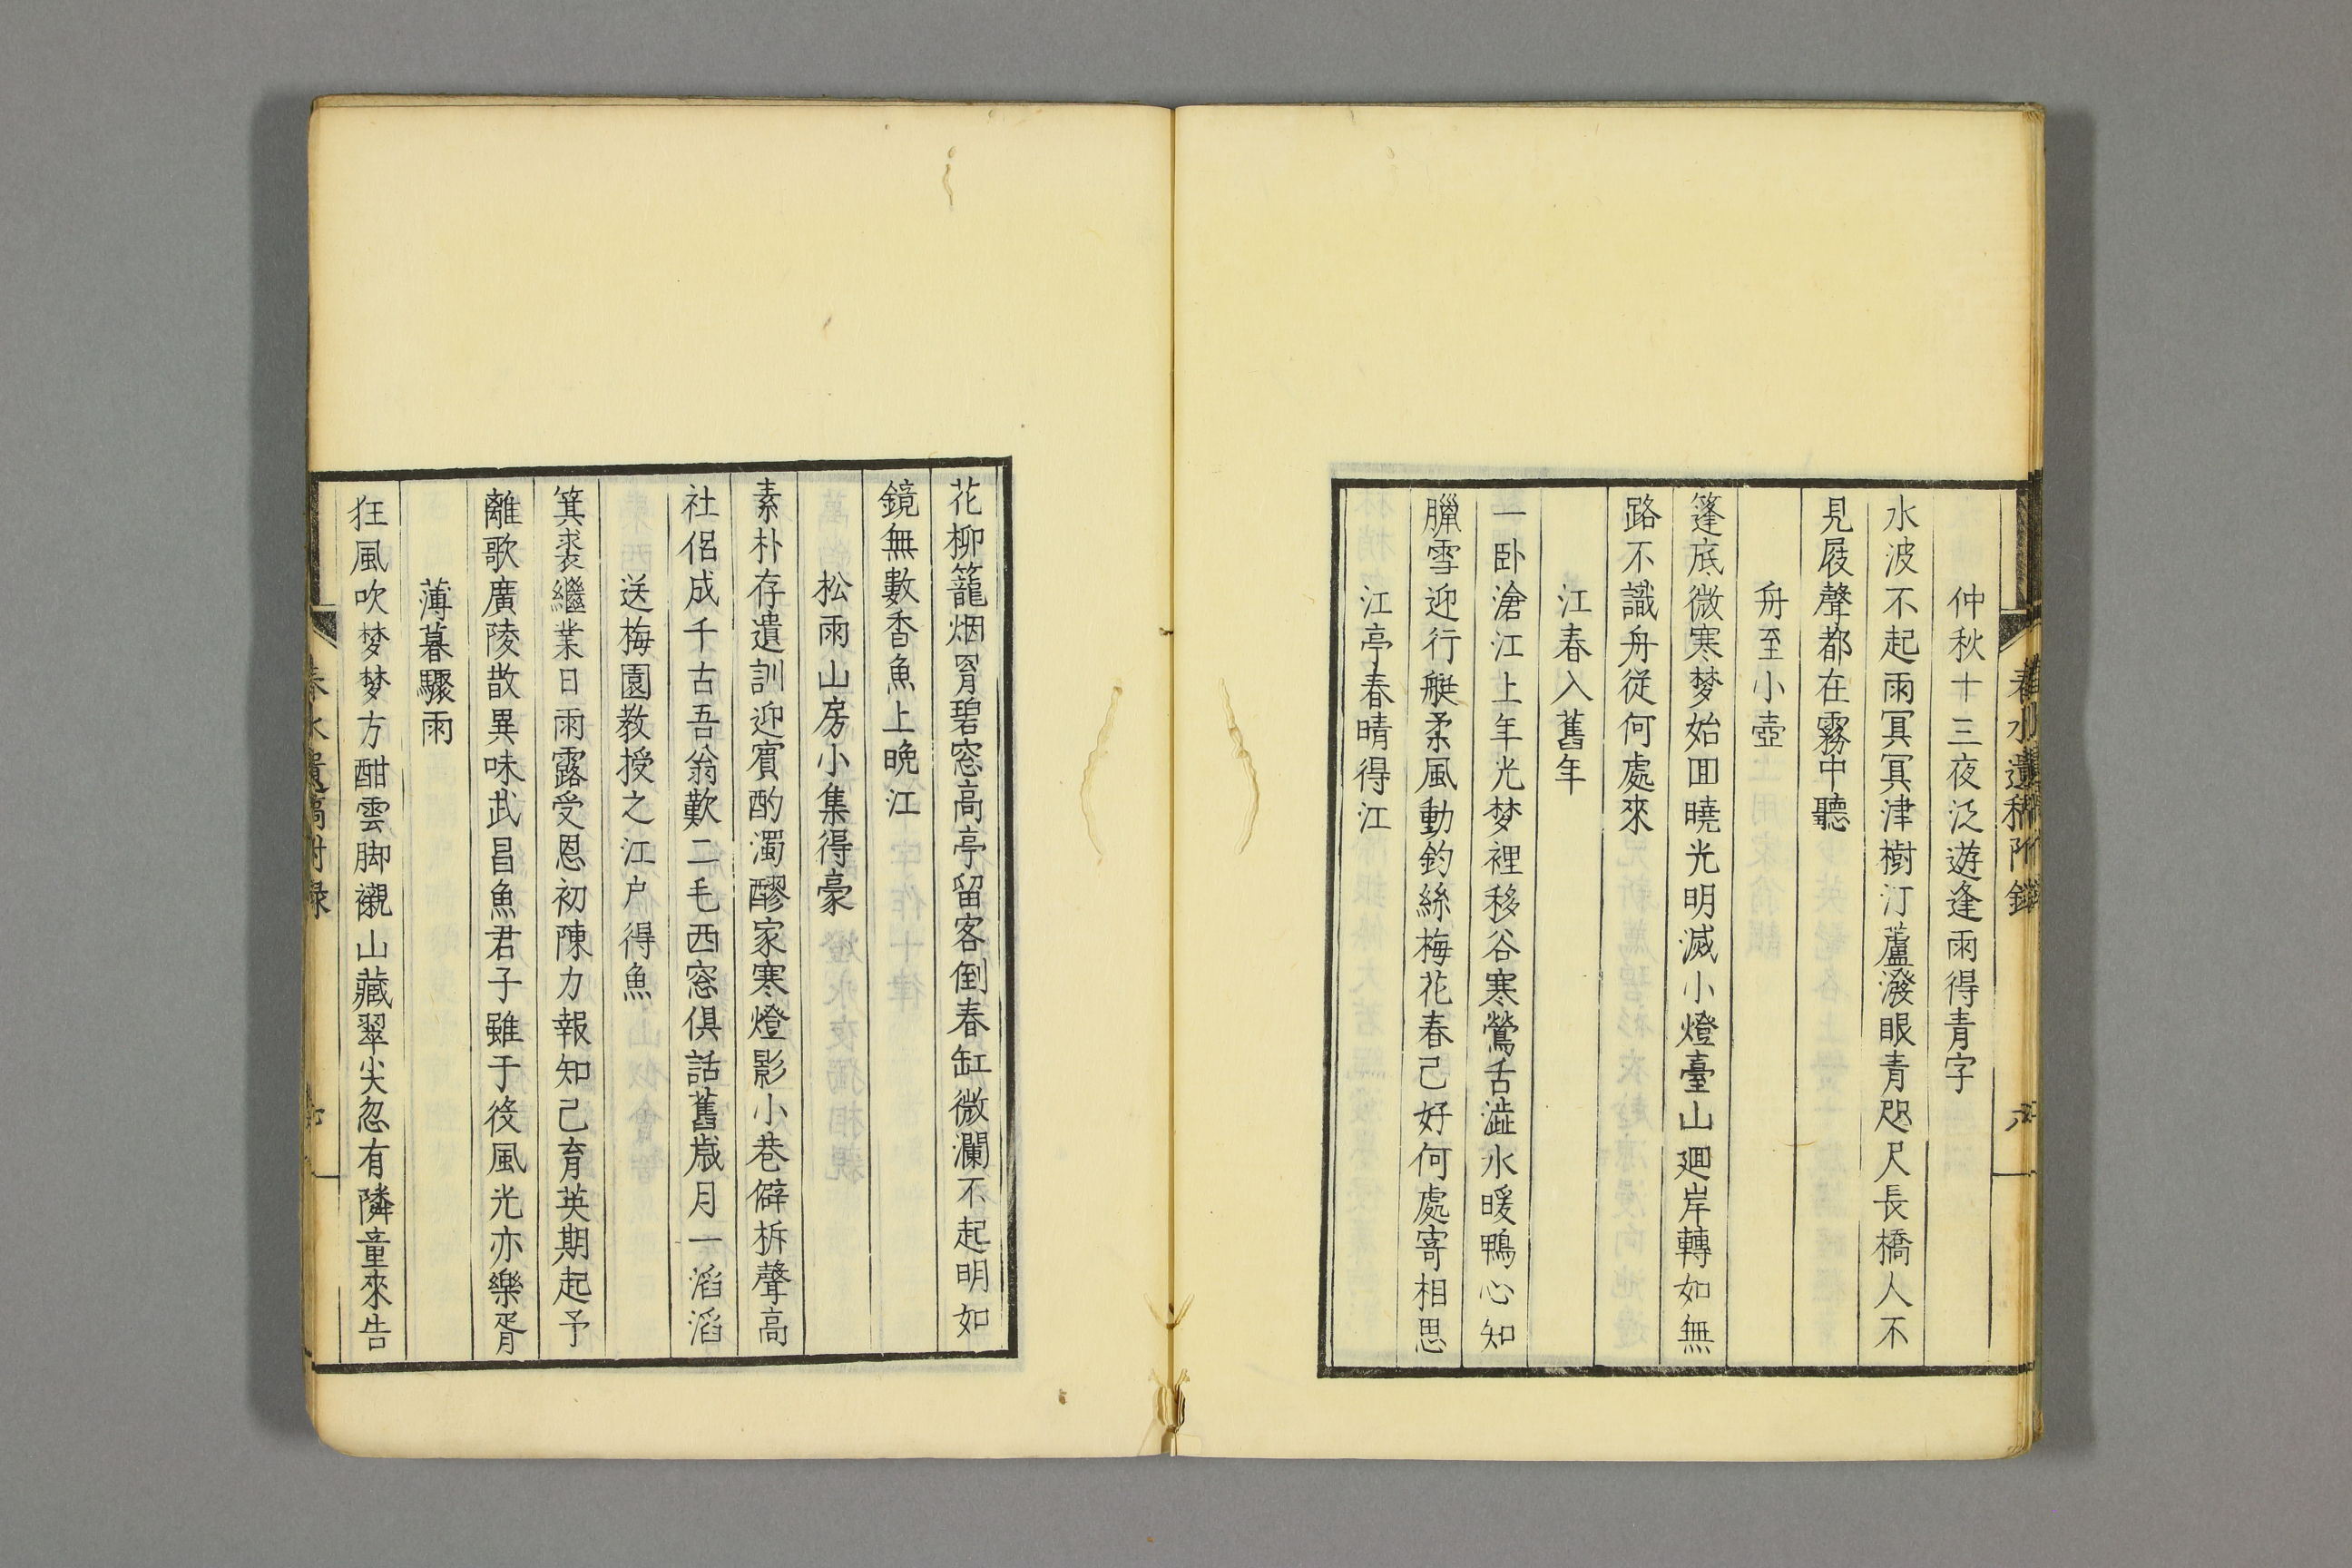 仲秋十三夜泛遊逢雨得青字
水波不起雨冥冥津樹汀蘆潑眼青咫尺長橋人不
見屐聲都在霧中聽
舟至小壺
篷底微寒梦始回曉光明滅小燈臺山廻岸轉如無
路不識舟從何處來
江春入舊年
一卧滄江上年光梦裡移谷寒鶯舌澁水暖鴨心知
臘雪迎行艇柔風動釣絲梅花春已好何處寄相思
江亭春晴得江
花柳籠烟罥碧窓高亭留客倒春缸微瀾不起明如
鏡無數香魚上晩江
松雨山房小集得豪
素朴存遺訓迎賓酌濁醪家寒燈影小巷僻柝聲高
社侶成千古吾翁歎二毛西窓俱話舊歳月一滔滔
送梅園教授之江戶得魚
箕裘繼業日雨露受恩初陳力報知己育英期起予
離歌廣陵散異味武昌魚君子雖于役風光亦樂胥
薄暮驟雨
狂風吹梦梦方酣雲脚襯山藏翠尖忽有隣童來告
春水遺稿附録